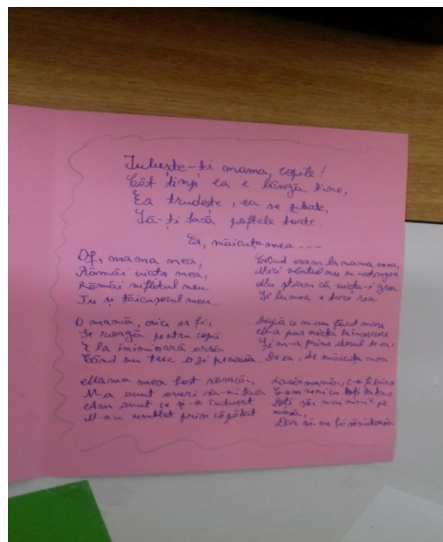 Iubește-ți mama, copile!
Cât timp ea e lângă tine,
Ea trudește, ea se zbate,
Să-ți facă poftele toate.
Ea, măicuța mea ...
Of, mama mea,
Rămâi viața mea,
Rămâi sufletul meu
Tu și tăicuțocul meu
O mamă, orice ar fi,
Se roagă pentru copii
E la inimioară arsă
Când nu trec ei pe acasă.
Mama mea fost săracă,
N-a avut averi să-mi facă
Am avut ce și-a îndurat
N-am umblat prin căpătat
Când eram la mama mea,
Nici vântul nu m-atingea
Nu știam că viața-i grea
Și lumea e rea.
După ce m-am făcut mare
M-a pus viața la încercare
Și m-a prins dorul de ea,
De ea, de măicuța mea
Las' mamă, c-o fi bine